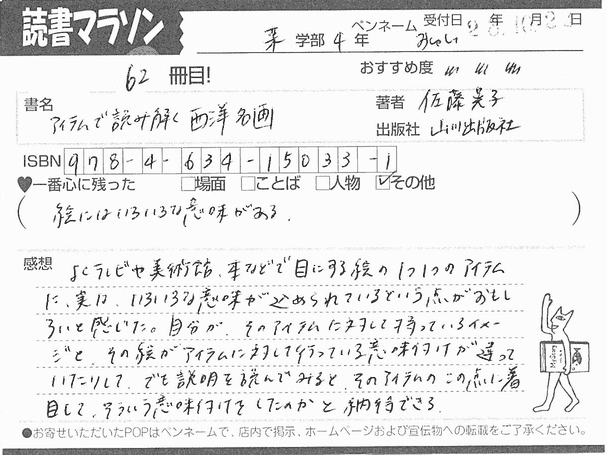 読書マラソン
ペンネーム 受付日 年 月 日
薬 学部 4 年 みゃい
62 冊目!
おすすめ度
書名 アイテムで読み解く 西洋名画
著者 佐藤晃子
出版社 山川出版社
ISBN 978-4-634-15033-1
♥一番心に残った □場面 □ことば □人物 ☑その他
( 絵にはいろいろな意味がある。 )
感想 よくテレビや美術館、本などで目にする絵の1つ1つのアイテム
に、実は、いろいろな意味が込められているという点がおもし
ろいと感じた。自分が、そのアイテムに対して持っているイメー
ジと、その絵がアイテムに対して行っている意味付けが違って
いたりして、でも説明を読んでみると、そのアイテムのこの点に着
目して、そういう意味付けをしたのかと納得できる。
●お寄せいただいたPOPはペンネームで、店内で掲示、ホームページおよび宣伝物への転載をご了承ください。